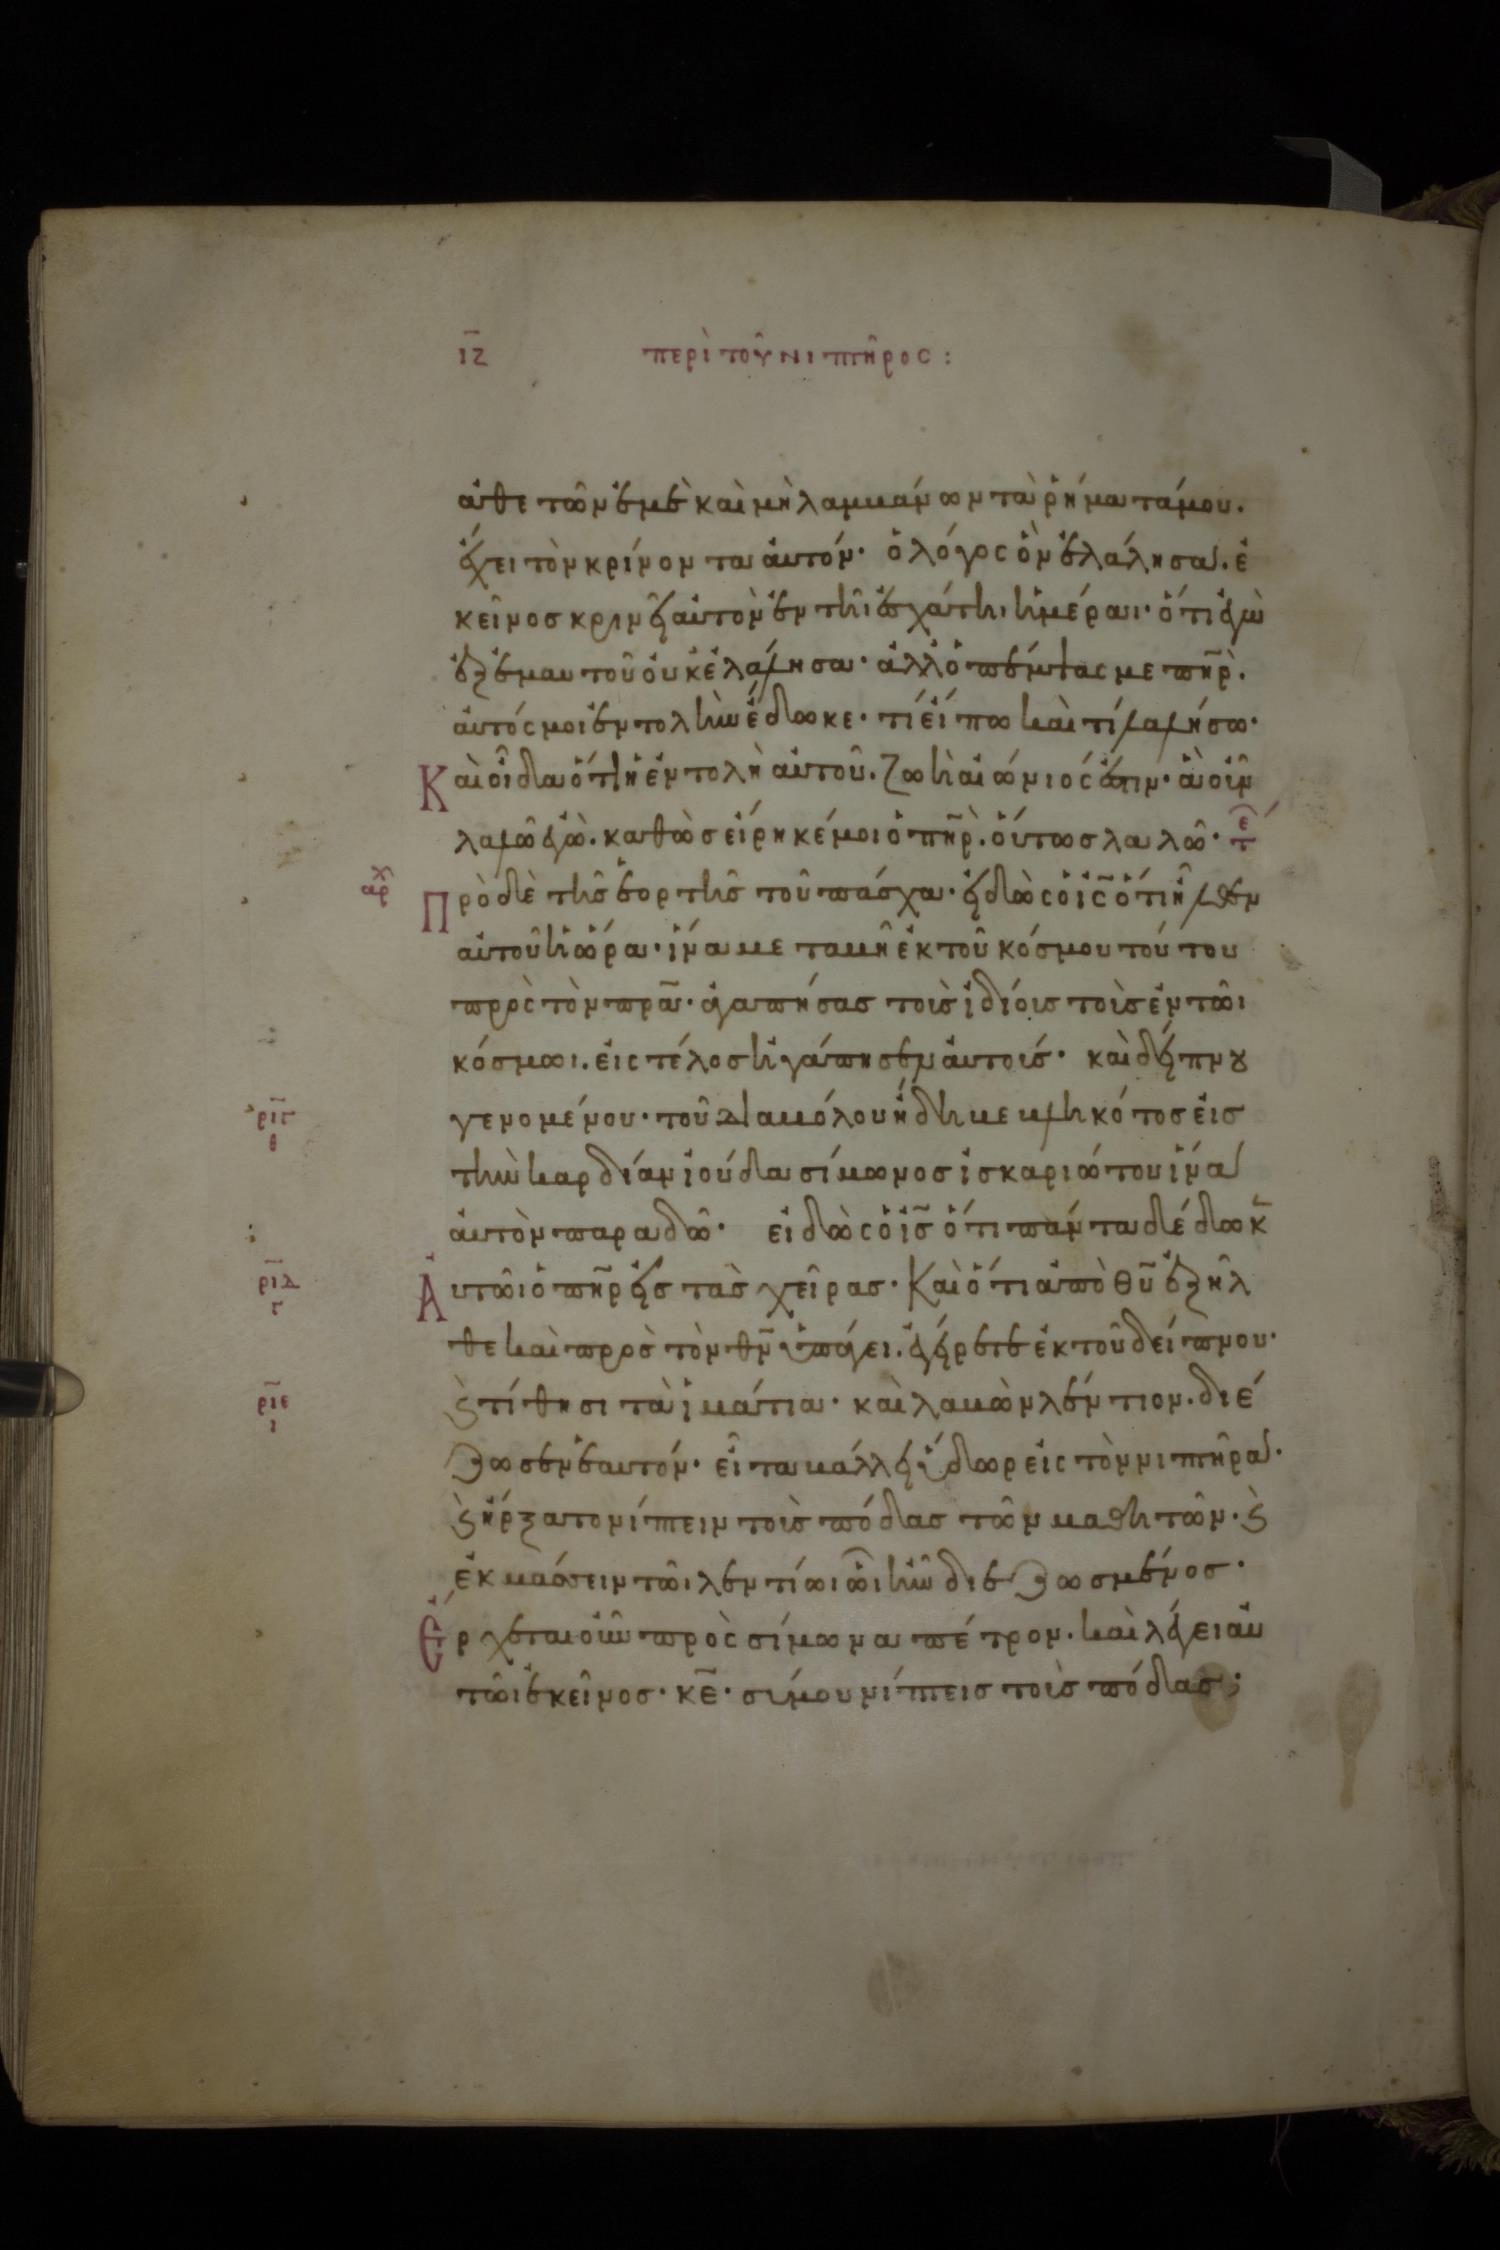 ιζ περὶ τοῦ νιπτῆρος:
ἀθετῶν ἐμὲ καὶ μὴ λαμβάνων τὰ ῥήματά μου.
ἔχει τὸν κρίνοντα ἀυτόν· ὁ λόγος ὃν ἐλάλησα. ἐ
κεῖνος κρινεῖ ἀυτὸν ἐν τῆι ἐσχάτηι ἡμέραι· ὅτι ἐγὼ
ἐξ ἐμαυτοῦ ὀυκ ἐλάλησα· ἀλλ ὁ πέμψας με πη̅ρ.
ἀυτός μοι ἐντολὴν ἔδωκε· τί εἴπω καὶ τί λαλήσω·
Καὶ οἶδα ὅτι ἡ ἐντολὴ ἀυτοῦ. ζωὴ ἀιώνιός ἐστιν· ἃ οὖν
λαλῶ ἐγὼ. καθὼς εἴρηκέ μοι ὁ πη̅ρ. ὅυτως λαλῶ· τε
αρχ Πρὸ δὲ τῆς ἑορτῆς τοῦ πάσχα· εἰδὼς ὁ ις̅ ὅτι ἦλθεν
ἀυτοῦ ἡ ὥρα· ἵνα μεταβῆ ἐκ τοῦ κόσμου τούτου
πρὸς τὸν πρα̅· ἀγαπήσας τοὺς ἰδίους τοὺς ἐν τῶι
κόσμωι. ἐις τέλος ἠγάπησεν ἀυτούς· καὶ δείπνου
ριγ θ γενομένου· τοῦ διαβόλου ἤδη βεβληκότος ἐις
τὴν καρδίαν ἰούδα σίμωνος ἰσκαριώτου ἵνα
ἀυτὸν παραδῶ· εἰδὼς ὁ ις̅ ὅτι πάντα δέδωκ
ριδ γ Ἀυτῶι ὁ πη̅ρ εἰς τὰς χεῖρας· Καὶ ὅτι ἀπὸ θυ̅ ἐξῆλ
θε καὶ πρὸς τὸν θν̅ ὑπάγει. ἐγείρεται ἐκ τοῦ δείπνου·
ριε ι ϗ τίθησι τὰ ἱμάτια· καὶ λαβὼν λέντιον. διέ
ζωσεν ἑαυτόν· εἶτα βάλλει ὕδωρ ἐις τὸν νιπτῆρα.
ϗ ἤρξατο νίπτειν τοὺς πόδας τῶν μαθητῶν· ϗ
ἐκμάσσειν τῶι λεντίωι ὧι ἦν διεζωσμένος·
Ἔρχεται οὖν πρὸς σίμωνα πέτρον. καὶ λέγει ἀυ
τῶι ἐκεῖνος· κε̅· σύ μου νίπτεις τοὺς πόδας;